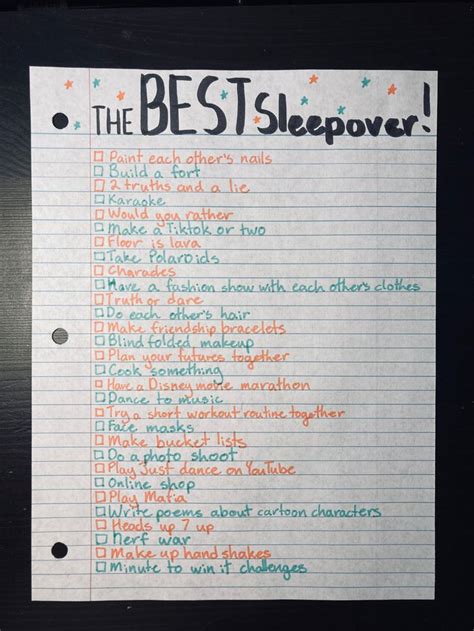 THE BEST Sleepover!
Paint each other's nails
Build a fort
2 truths and a lie
Karaoke
Would you rather
Make a Tiktok or two
Floor is lava
Take Polaroids
Charades
Have a fashion show with each other's clothes
Truth or dare
Do each other's hair
Make friendship bracelets
Blind folded makeup
Plan your futures together
Cook something
Have a Disney movie marathon
Dance to music
Try a short workout routine together
Face masks
Make bucket lists
Do a photo shoot
Play Just dance on YouTube
Online shop
Play Mafia
Write poems about cartoon characters
Heads up 7 up
Nerf war
Make up hand shakes
Minute to win it challenges